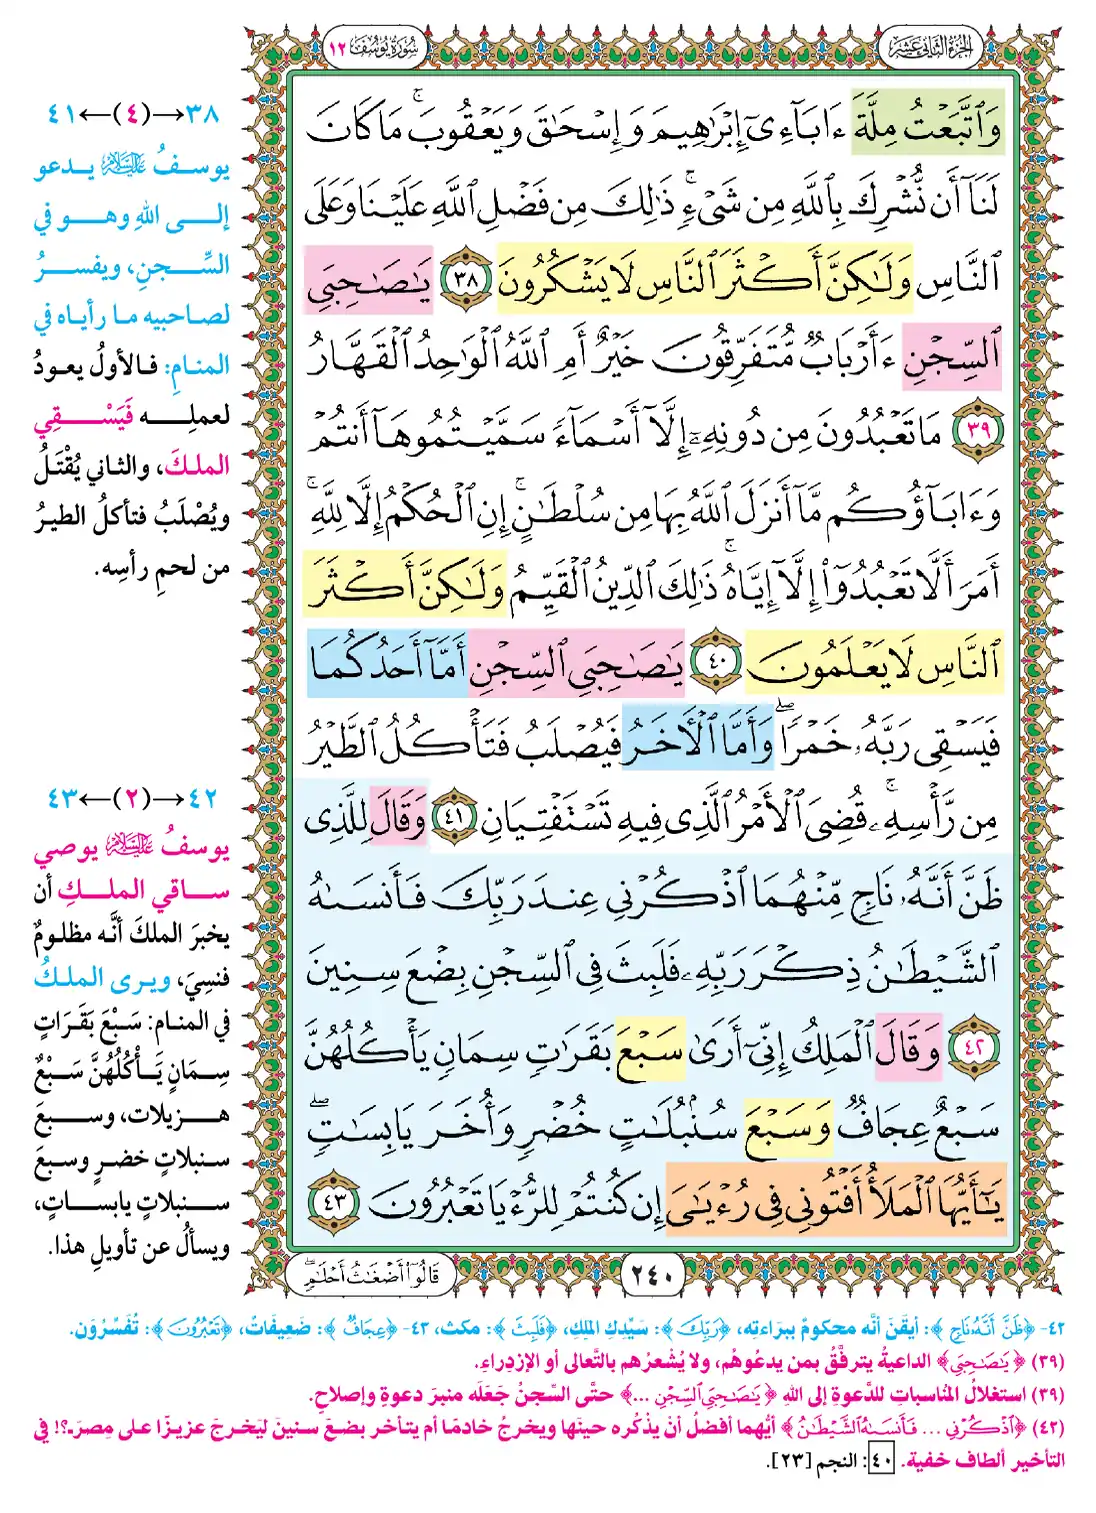 الجزء الثاني عشر
سورة يوسف ١٢
وَٱتَّبَعْتُ مِلَّةَ ءَابَآءِىٓ إِبْرَٰهِيمَ وَإِسْحَٰقَ وَيَعْقُوبَ ۚ مَا كَانَ
لَنَآ أَن نُّشْرِكَ بِٱللَّهِ مِن شَىْءٍ ۚ ذَٰلِكَ مِن فَضْلِ ٱللَّهِ عَلَيْنَا وَعَلَى
ٱلنَّاسِ وَلَٰكِنَّ أَكْثَرَ ٱلنَّاسِ لَا يَشْكُرُونَ ٣٨ يَٰصَٰحِبَىِ
ٱلسِّجْنِ ءَأَرْبَابٌ مُّتَفَرِّقُونَ خَيْرٌ أَمِ ٱللَّهُ ٱلْوَٰحِدُ ٱلْقَهَّارُ
٣٩ مَا تَعْبُدُونَ مِن دُونِهِۦٓ إِلَّآ أَسْمَآءً سَمَّيْتُمُوهَآ أَنتُمْ
وَءَابَآؤُكُم مَّآ أَنزَلَ ٱللَّهُ بِهَا مِن سُلْطَٰنٍ ۚ إِنِ ٱلْحُكْمُ إِلَّا لِلَّهِ ۚ
أَمَرَ أَلَّا تَعْبُدُوٓا۟ إِلَّآ إِيَّاهُ ۚ ذَٰلِكَ ٱلدِّينُ ٱلْقَيِّمُ وَلَٰكِنَّ أَكْثَرَ
ٱلنَّاسِ لَا يَعْلَمُونَ ٤٠ يَٰصَٰحِبَىِ ٱلسِّجْنِ أَمَّآ أَحَدُكُمَا
فَيَسْقِى رَبَّهُۥ خَمْرًا ۖ وَأَمَّا ٱلْءَاخَرُ فَيُصْلَبُ فَتَأْكُلُ ٱلطَّيْرُ
مِن رَّأْسِهِۦ ۚ قُضِىَ ٱلْأَمْرُ ٱلَّذِى فِيهِ تَسْتَفْتِيَانِ ٤١ وَقَالَ لِلَّذِى
ظَنَّ أَنَّهُۥ نَاجٍ مِّنْهُمَا ٱذْكُرْنِى عِندَ رَبِّكَ فَأَنسَىٰهُ
ٱلشَّيْطَٰنُ ذِكْرَ رَبِّهِۦ فَلَبِثَ فِى ٱلسِّجْنِ بِضْعَ سِنِينَ
٤٢ وَقَالَ ٱلْمَلِكُ إِنِّىٓ أَرَىٰ سَبْعَ بَقَرَٰتٍ سِمَانٍ يَأْكُلُهُنَّ
سَبْعٌ عِجَافٌ وَسَبْعَ سُنۢبُلَٰتٍ خُضْرٍ وَأُخَرَ يَابِسَٰتٍ ۖ
يَٰٓأَيُّهَا ٱلْمَلَأُ أَفْتُونِى فِى رُءْيَٰىَ إِن كُنتُمْ لِلرُّءْيَا تَعْبُرُونَ ٤٣
٢٤٠
قَالُوٓا۟ أَضْغَٰثُ أَحْلَٰمٍ ۖ
٣٨→(٤)←٤١
يوسفُ عليه السلام يدعو
إلى اللهِ وهو في
السِّجنِ، ويفسرُ
لصاحبيه ما رأياه في
المنامِ: فالأولُ يعودُ
لعملِه فَيَسْقِي
الملكَ، والثاني يُقْتَلُ
ويُصْلَبُ فتأكلُ الطيرُ
من لحمِ رأسِه.
٤٢→(٢)←٤٣
يوسفُ عليه السلام يوصي
ساقي الملكِ أن
يخبرَ الملكَ أنَّه مظلومٌ
فنسِيَ، ويرى الملكُ
في المنام: سَبْعَ بَقَرَاتٍ
سِمَانٍ يَأْكُلُهُنَّ سَبْعٌ
هزيلات، وسبعَ
سنبلاتٍ خضرٍ وسبعَ
سنبلاتٍ يابساتٍ،
ويسألُ عن تأويلِ هذا.
٤٢- ﴿ظَنَّ أَنَّهُۥ نَاجٍ﴾: أيقَنَ أنَّه محكومٌ ببراءتِه، ﴿رَبِّكَ﴾: سَيِّدِكِ الملِكِ، ﴿فَلَبِثَ﴾: مكث، ٤٣- ﴿عِجَافٌ﴾: ضَعِيفَاتٌ، ﴿تَعْبُرُونَ﴾: تُفَسِّرُونَ.
(٣٩) ﴿يَٰصَٰحِبَىِ﴾ الداعيةُ يترفَّقُ بمن يدعُوهُم، ولا يُشْعرُهم بالتَّعالى أو الإزدِراءِ.
(٣٩) استغلالُ المُناسباتِ للدَّعوةِ إلى اللهِ ﴿يَٰصَٰحِبَىِ ٱلسِّجْنِ ...﴾ حتَّى السِّجنُ جَعَلَه منبرَ دعوةٍ وإصلاحٍ.
(٤٢) ﴿ٱذْكُرْنِى ... فَأَنسَىٰهُ ٱلشَّيْطَٰنُ﴾ أيُّهما أفضلُ أنْ يذْكُره حينَها ويخرجُ خادمًا أم يتأخر بضعَ سنينَ ليَخرجَ عزيزًا على مِصرَ؟! في
التأخير ألطاف خفية. ٤٠: النجم [٢٣].